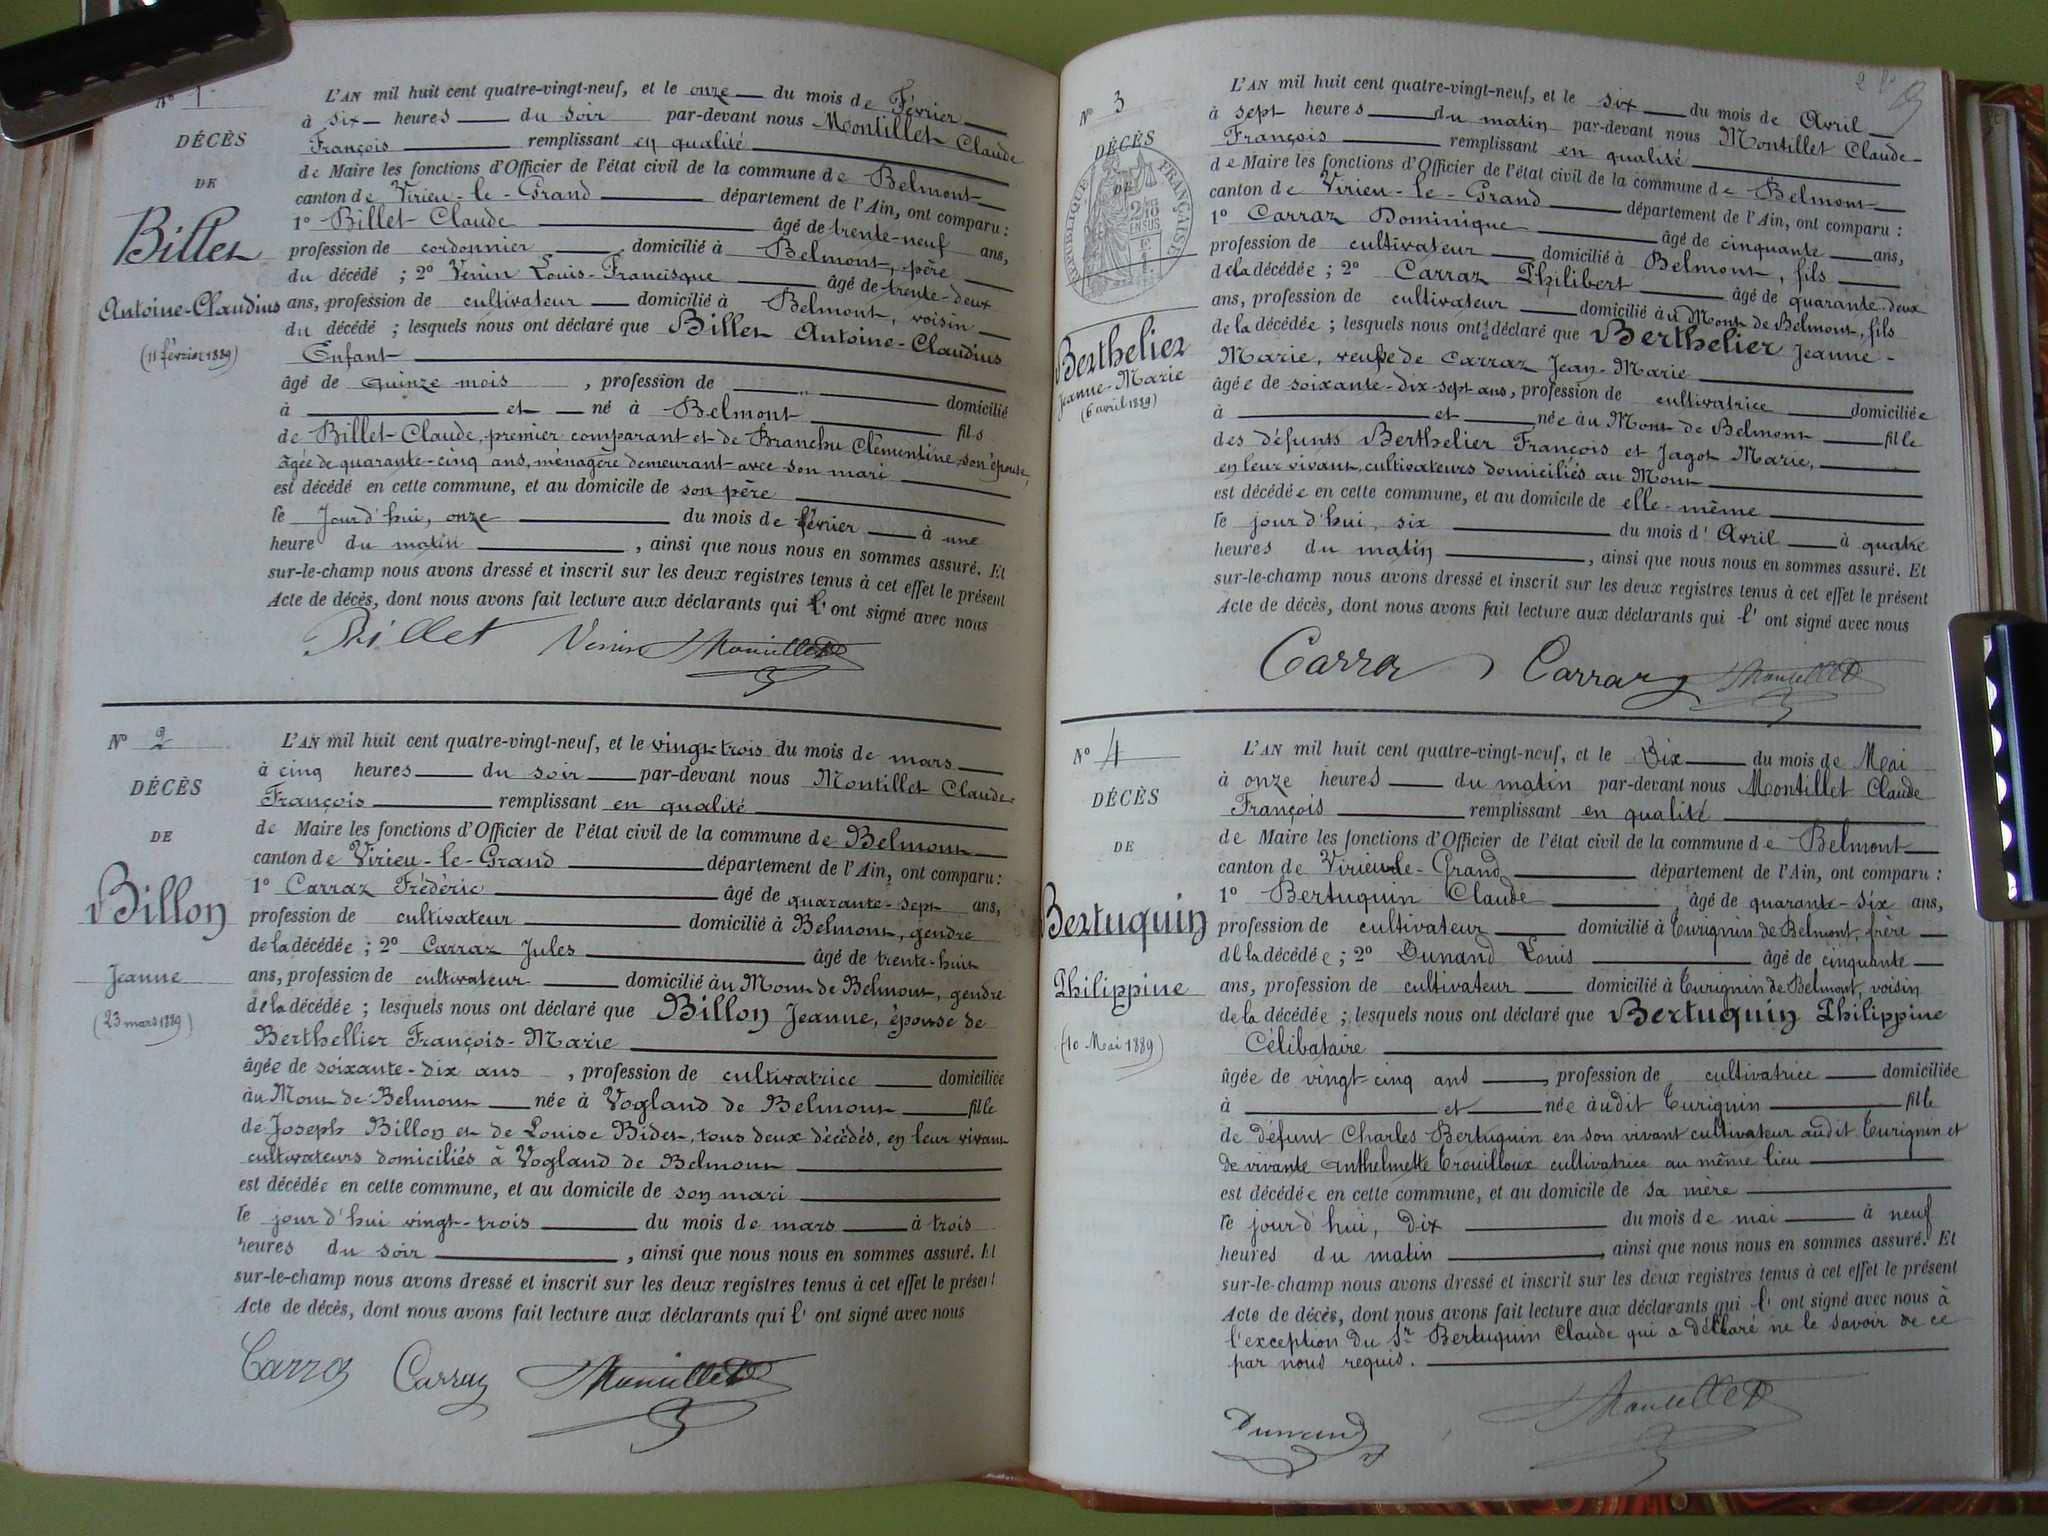 N° 1
DÉCÈS
DE
Billet
Antoine-Claudius
(11 février 1889)
L'AN mil huit cent quatre-vingt-neuf, et le onze du mois de Février
à six heures du soir par-devant nous Montillet Claude
François remplissant en qualité
de Maire les fonctions d'Officier de l'état civil de la commune de Belmont
canton de Virieu-le-Grand département de l'Ain, ont comparu :
1° Billet Claude âgé de trente-neuf ans,
profession de cordonnier, domicilié à Belmont, père
du décédé ; 2° Venin Louis-Francisque âgé de trente-deux
ans, profession de cultivateur domicilié à Belmont, voisin
du décédé ; lesquels nous ont déclaré que Billet Antoine-Claudius
Enfant
âgé de quinze mois, profession de „ domicilié
à et né à Belmont fils
de Billet Claude, premier comparant et de Branchu Clémentine, son épouse,
âgée de quarante-cinq ans, ménagère demeurant avec son mari
est décédé en cette commune, et au domicile de son père
le Jourd'hui, onze du mois de février à une
heure du matin, ainsi que nous nous en sommes assuré. Et
sur-le-champ nous avons dressé et inscrit sur les deux registres tenus à cet effet le présent
Acte de décès, dont nous avons fait lecture aux déclarants qui l'ont signé avec nous
Billet Venin Montillet
N° 2
DÉCÈS
DE
Billon
Jeanne
(23 mars 1889)
L'AN mil huit cent quatre-vingt-neuf, et le vingt-trois du mois de mars
à cinq heures du soir par-devant nous Montillet Claude-
François remplissant en qualité
de Maire les fonctions d'Officier de l'état civil de la commune de Belmont
canton de Virieu-le-Grand département de l'Ain, ont comparu :
1° Carraz Frédéric âgé de quarante-sept ans,
profession de cultivateur domicilié à Belmont, gendre
de la décédée ; 2° Carraz Jules âgé de trente-huit
ans, profession de cultivateur domicilié au Mont de Belmont, gendre
de la décédée ; lesquels nous ont déclaré que Billon Jeanne, épouse de
Berthellier François-Marie
âgée de soixante-dix ans, profession de cultivatrice domiciliée
au Mont de Belmont née à Vogland de Belmont fille
de Joseph Billon et de Louise Bidet, tous deux décédés, en leur vivant
cultivateurs domiciliés à Vogland de Belmont
est décédée en cette commune, et au domicile de son mari
le jourd'hui vingt-trois du mois de mars à trois
heures du soir, ainsi que nous nous en sommes assuré. Et
sur-le-champ nous avons dressé et inscrit sur les deux registres tenus à cet effet le présent
Acte de décès, dont nous avons fait lecture aux déclarants qui l'ont signé avec nous
Carraz Carraz Montillet
2
N° 3
DÉCÈS
DE
RÉPUBLIQUE FRANÇAISE
2/10 EN SUS
Berthelier
Jeanne-Marie
(6 avril 1889)
L'AN mil huit cent quatre-vingt-neuf, et le six du mois de Avril
à sept heures du matin par-devant nous Montillet Claude-
François remplissant en qualité
de Maire les fonctions d'Officier de l'état civil de la commune de Belmont
canton de Virieu-le-Grand département de l'Ain, ont comparu :
1° Carraz Dominique âgé de cinquante ans,
profession de cultivateur domicilié à Belmont, fils
de la décédée ; 2° Carraz Philibert âgé de quarante-deux
ans, profession de cultivateur domicilié au Mont de Belmont, fils
de la décédée ; lesquels nous ont déclaré que Berthelier Jeanne-
Marie, veuve de Carraz Jean-Marie
âgée de soixante-dix-sept ans, profession de cultivatrice domiciliée
à et née au Mont de Belmont fille
des défunts Berthelier François et Jagot Marie,
en leur vivant, cultivateurs domiciliés au Mont
est décédée en cette commune, et au domicile de elle-même
le jourd'hui, six du mois d'Avril à quatre
heures du matin, ainsi que nous nous en sommes assuré. Et
sur-le-champ nous avons dressé et inscrit sur les deux registres tenus à cet effet le présent
Acte de décès, dont nous avons fait lecture aux déclarants qui l'ont signé avec nous
Carraz Carraz Montillet
N° 4
DÉCÈS
DE
Bertuquin
Philippine
(10 Mai 1889)
L'AN mil huit cent quatre-vingt-neuf, et le Dix du mois de Mai
à onze heures du matin par-devant nous Montillet Claude
François remplissant en qualité
de Maire les fonctions d'Officier de l'état civil de la commune de Belmont
canton de Virieu-le-Grand département de l'Ain, ont comparu :
1° Bertuquin Claude, âgé de quarante-six ans,
profession de cultivateur domicilié à Turignin de Belmont, frère
de la décédée ; 2° Dunand Louis âgé de cinquante
ans, profession de cultivateur domicilié à Turignin de Belmont, voisin
de la décédée ; lesquels nous ont déclaré que Bertuquin Philippine
Célibataire
âgée de vingt-cinq ans, profession de cultivatrice domiciliée
à et née audit Turignin fille
de défunt Charles Bertuquin en son vivant cultivateur audit Turignin et
de vivante Anthelmette Trouilloux cultivatrice au même lieu
est décédée en cette commune, et au domicile de sa mère
le jourd'hui, dix du mois de mai à neuf
heures du matin, ainsi que nous nous en sommes assuré. Et
sur-le-champ nous avons dressé et inscrit sur les deux registres tenus à cet effet le présent
Acte de décès, dont nous avons fait lecture aux déclarants qui l'ont signé avec nous à
l'exception du Sr Bertuquin Claude qui a déclaré ne le savoir de ce
par nous requis.
Dunand Montillet